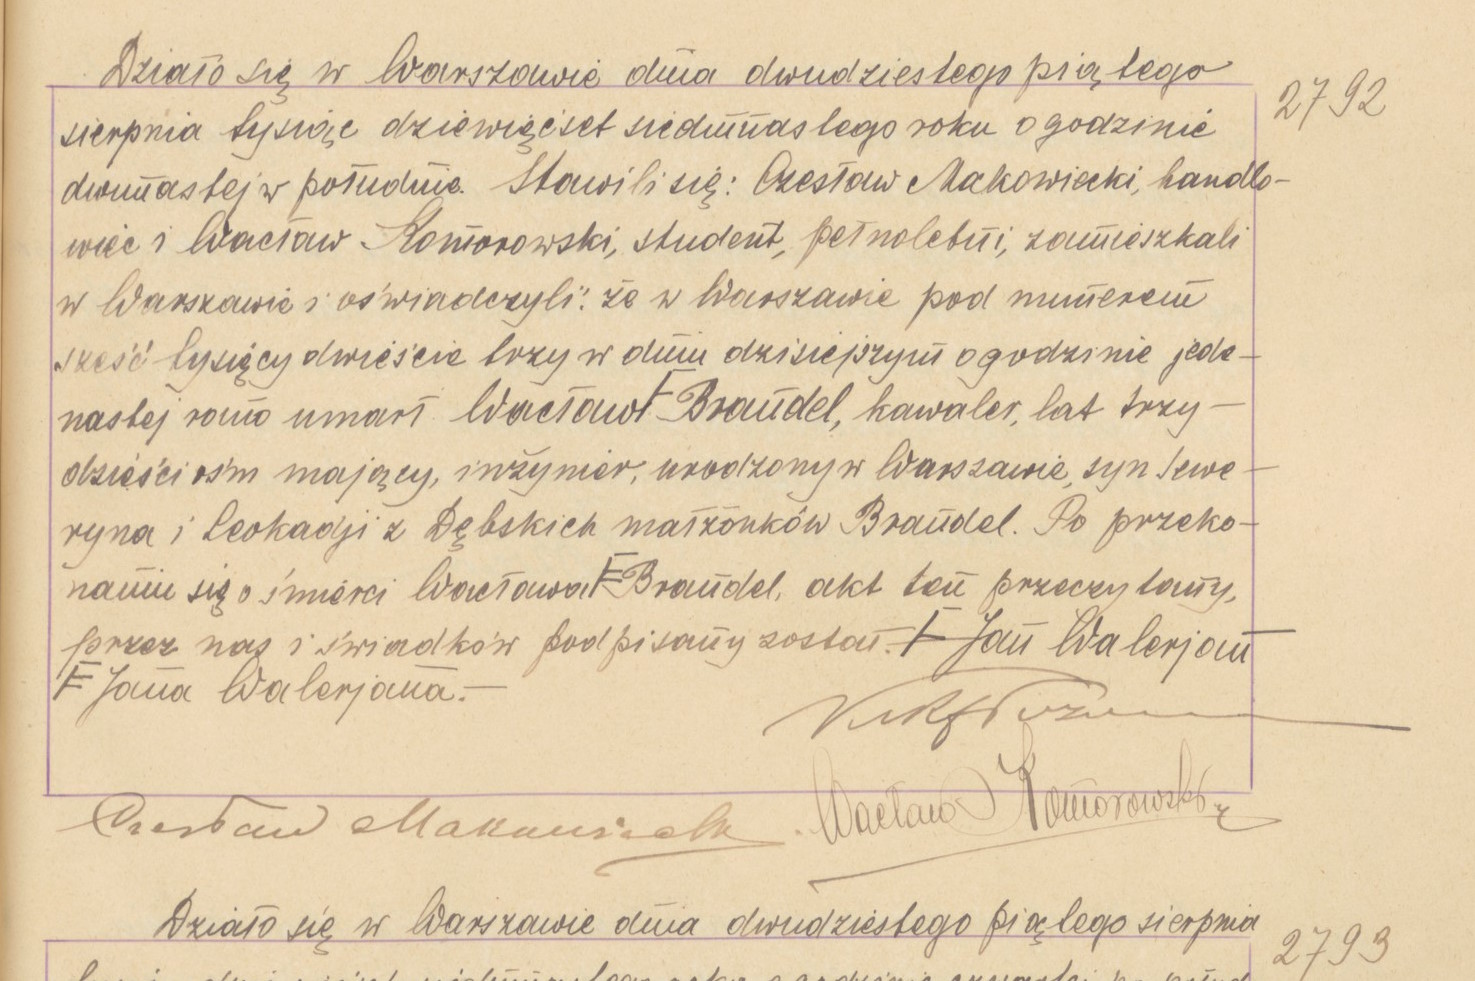 Działo się w Warszawie dnia dwudziestego piątego
2792
sierpnia tysiąc dziewięćset siedmnastego roku o godzinie
dwunastej w południe. Stawili się: Czesław Makowiecki, handlo-
wiec i Wacław Komorowski, student, pełnoletni, zamieszkali
w Warszawie i oświadczyli: że w Warszawie pod numerem
sześć tysięcy dwieście trzy w dniu dzisiejszym o godzinie jede-
nastej rano umarł Wacław Ƒ Brandel, kawaler, lat trzy-
dzieści ośm mający, inżynier, urodzony w Warszawie, syn Sewe-
ryna i Leokadji z Dębskich małżonków Brandel. Po przeko-
naniu się o śmierci Wacława Ƒ Brandel, akt ten przeczytany,
przez nas i świadków podpisany został. - Ƒ Jan Walerjan -
Ƒ Jana Walerjana. -
Czesław Makowiecki. Wacław Komorowski
Działo się w Warszawie dnia dwudziestego piątego sierpnia
2793